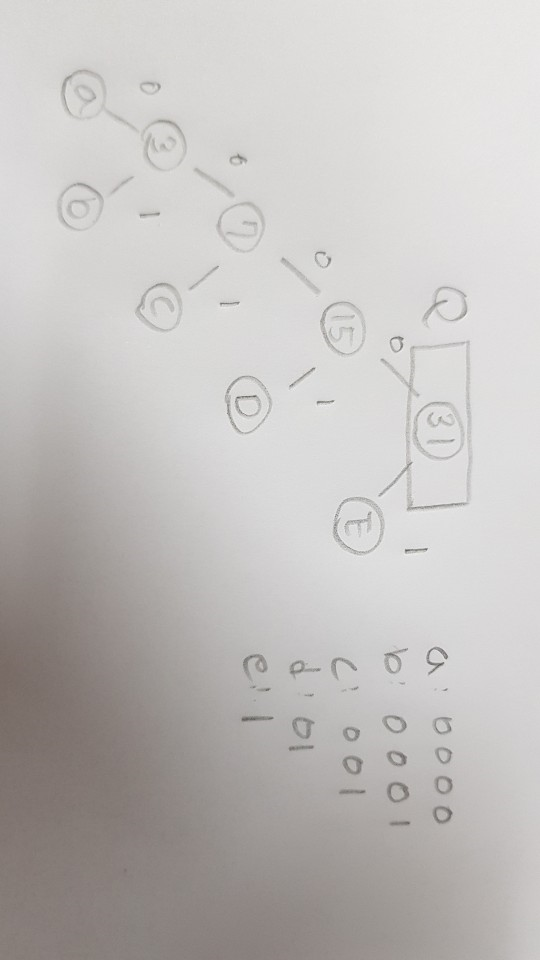 Q
31
0
1
15
E
0
1
7
D
0
1
3
C
0
1
a
b
a: 0000
b: 0001
c: 001
d: 01
e: 1